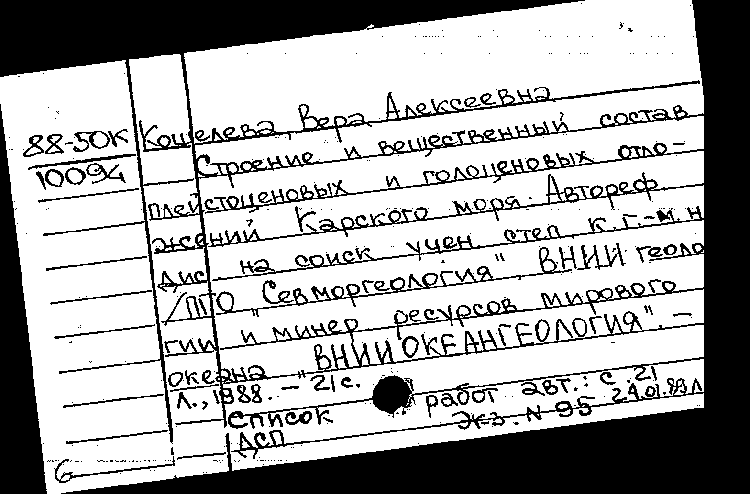 88-50К
10094
Кошелева, Вера Алексеевна
Строение и вещественный состав
плейстоценовых и голоценовых отло-
жений Карского моря. Автореф.
дис. на соиск. учен. степ. к. г.-м. н
/ПГО "Севморгеология", ВНИИ геоло
гии и минер. ресурсов мирового
океана "ВНИИОКЕАНГЕОЛОГИЯ". –
Л., 1988. – 21 с.
Список работ авт.: с. 21
ДСП Экз. N 95 24.01.89